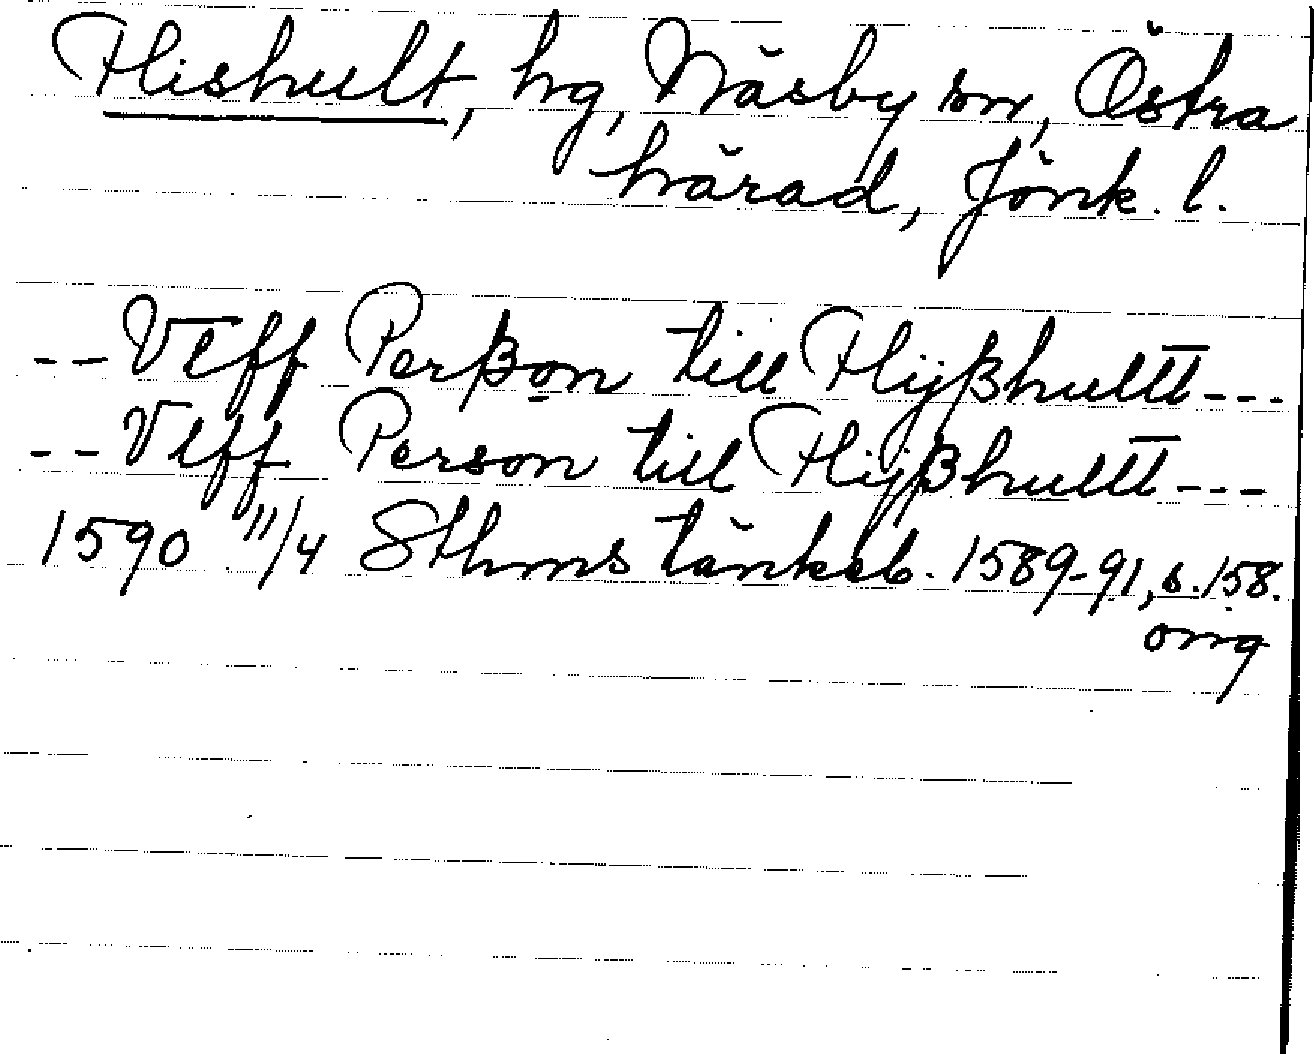 Flishult, hg, Näsby sn, Östra
härad, Jönk. l.
-- Vlff Perßon till Flÿßhultt ---
-- Vlff Person till Flÿßhultt ---
1590 11/4 Sthms tänkeb. 1589-91, s. 158.
orig